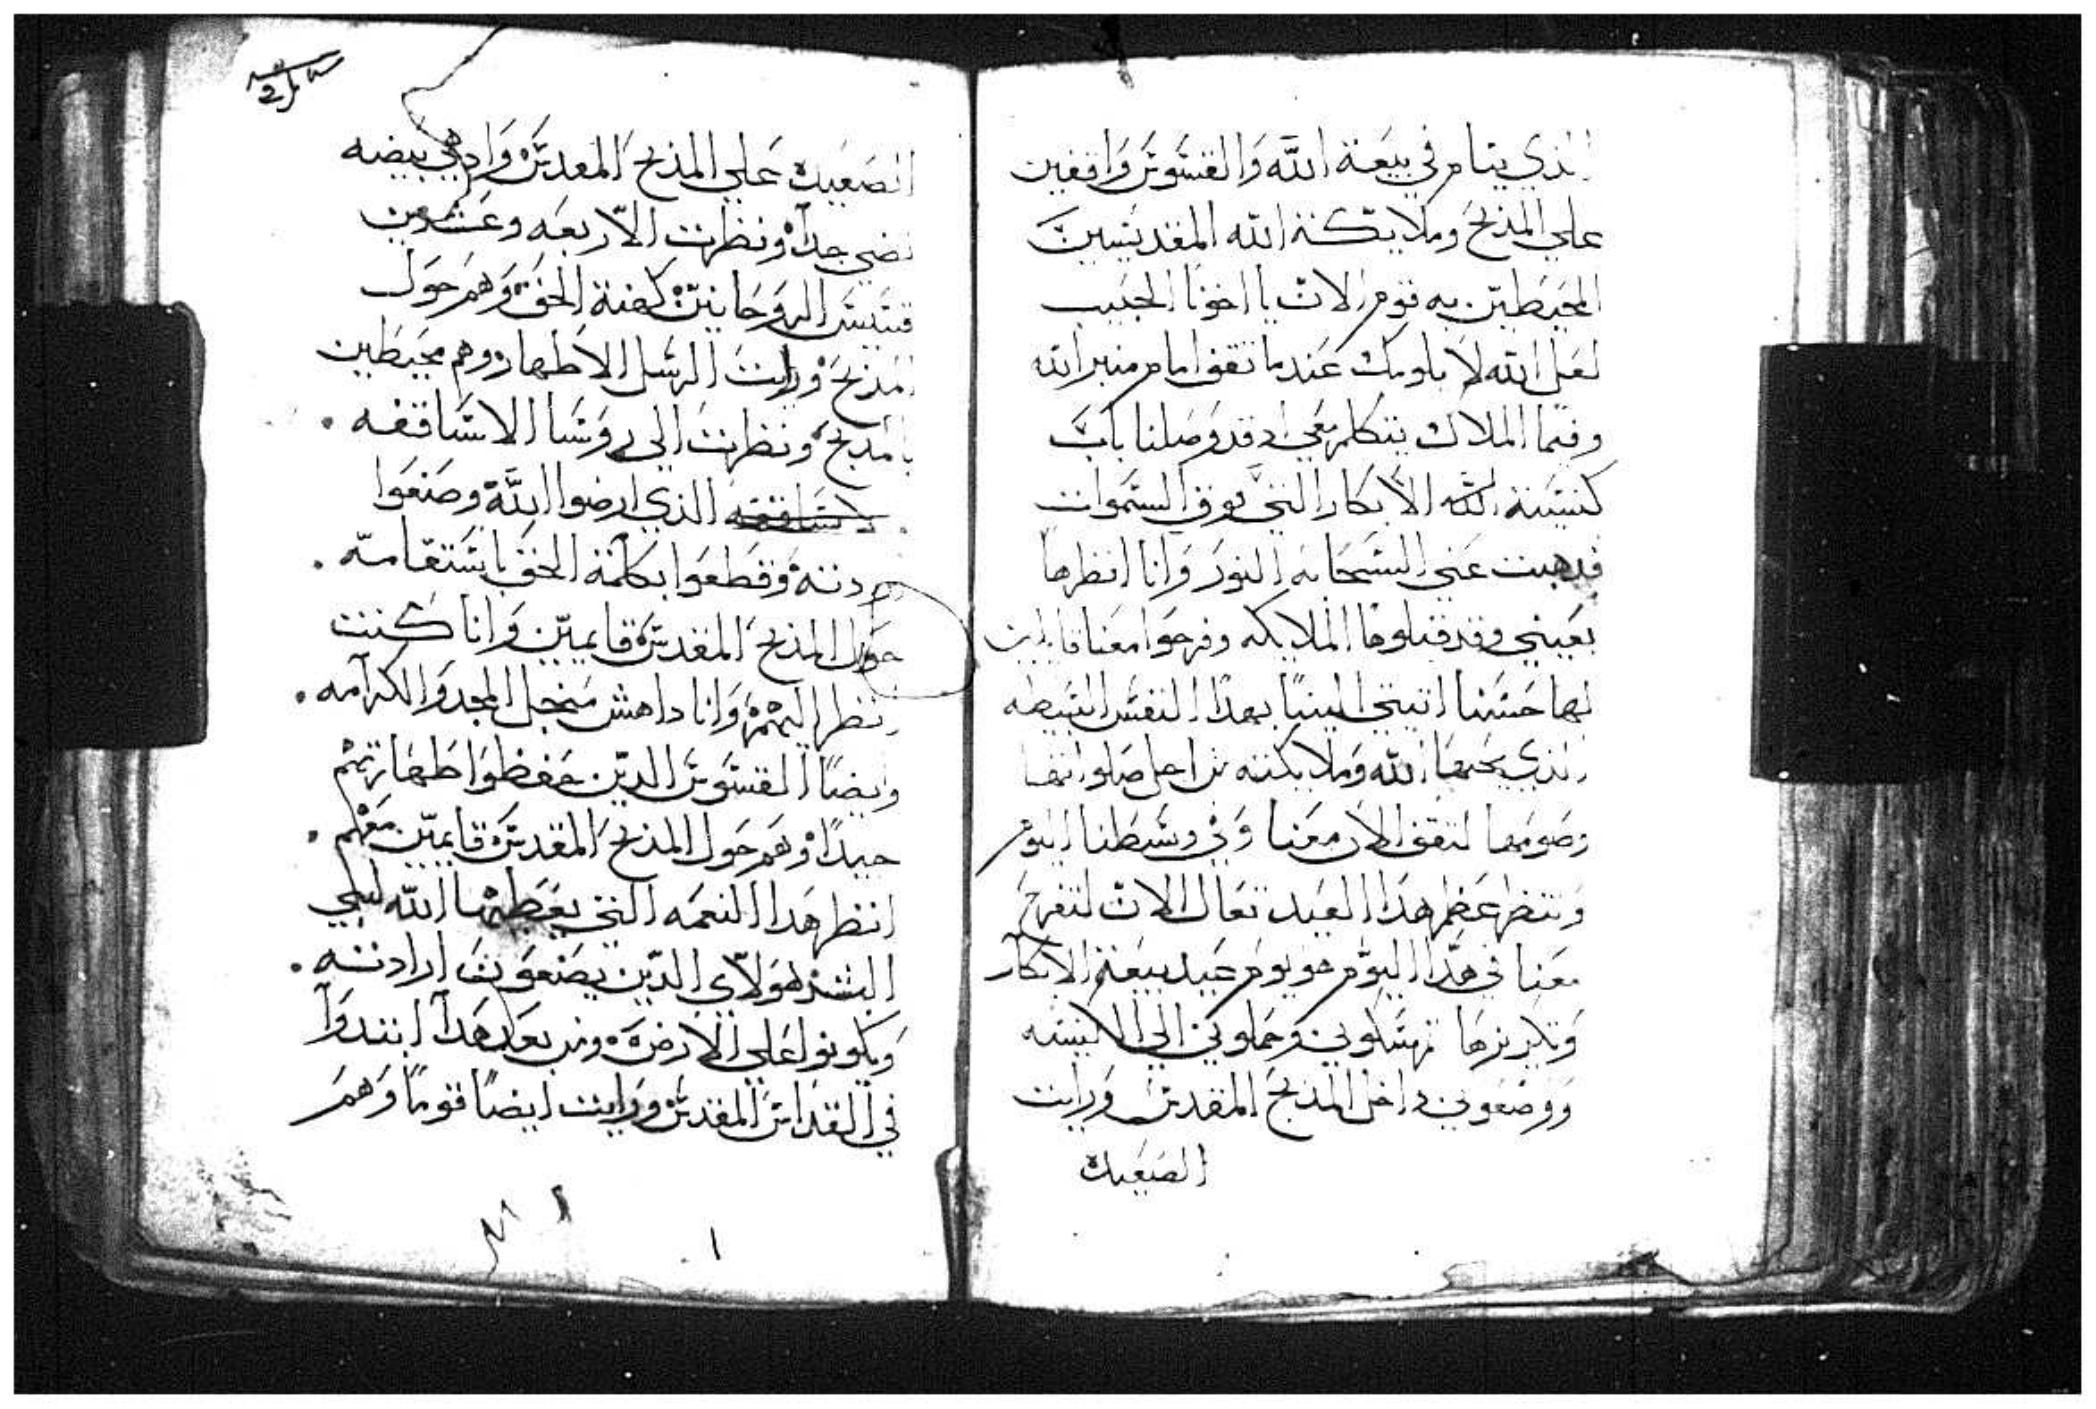 الذي ينام في بيعة الله والقسوس واقفين
علي المذبح وملايكة الله المقديسين
المحيطين به قوم الان يا اخونا الحبيب
لعل الله لا يلومك عندما تقف امام منبر الله
وفيما الملاك يتكلم معي اد قد وصلنا باب
كنيسة الله الابكار التي فوق السموات
فدهبت عني السحابه النور وانا انظرها
بعيني وقد قبلوها الملايكه وفرحوا معنا قايلين
لها حسنا اتيتي الينا بهدا النفس البسيطه
الذي يحبها الله وملايكته من اجل صلواتها
وصومها لتقف الان معنا وفي وسطنا اليوم
وتنظر عظم هدا العيد تعال الان لتفرح
معنا في هدا اليوم هو يوم عيد بيعة الابكار
وتكريزها تمسكوني وحملوني الي الكنيسه
ووضعوني داخل المدبح المقدس ورايت
الصعيده
الصعيده علي المذبح المقدس واد هي بيضه
تضي جدا ونظرت الاربعه وعشرين
قسيس الروحانيين كهنة الحق وهم حول
المذبح ورايت الرسل الاطهار وهم محيطين
بالمذبح ونظرت الي روسا الاساقفه
الاساقفه الذي ارضوا الله وصنعوا
وقطعوا بكلمة الحق باستقامه
حول المذبح المقدس قايمين وانا كنت
انظر اليهم وانا داهش من اجل المجد والكرامه
وايضا القسوس الدين حفظوا طهارتهم
جيدا وهم حول المذبح المقدس قايمين معهم
انظر هدا النعمه التي يعطيها الله لبني
البشر هولاي الدين يصنعون ارادته
ويكونوا علي الارض ومن بعد هدا ابتدوا
في القداس المقدس ورايت ايضا قوما وهم